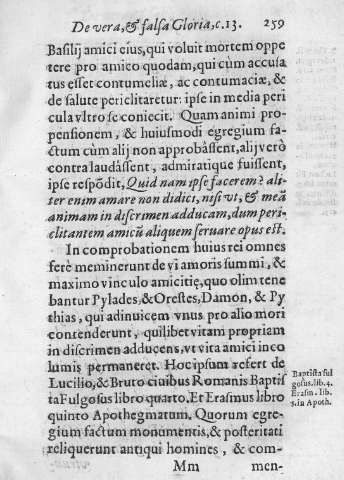 De vera, & falsa Gloria, c. 13. 259
Basilij amici eius, qui voluit mortem oppe
tere pro amico quodam, qui cùm accusa
tus esset contumeliæ, ac contumaciæ, &
de salute periclitaretur: ipse in media peri
cula vltro se coniecit. Quam animi pro-
pensionem, & huiusmodi egregium fa-
ctum cùm alij non approbâssent, alij verò
contra laudâssent, admiratique fuissent,
ipse respõdit, Quid nam ipse facerem? ali-
ter enim amare non didici, nisi vt, & meã
animam in discrimen adducam, dum peri-
clitantem amicũ aliquem seruare opus est.
In comprobationem huius rei omnes
ferè meminerunt de vi amoris summi, &
maximo vinculo amicitię, quo olim tene
bantur Pylades, & Orestes, Damon, & Py
thias, qui adinuicem vnus pro alio mori
contenderunt, quilibet vitam propriam
in discrimen adducens, vt vita amici inco
lumis permaneret. Hoc ipsum refert de
Lucilio, & Bruto ciuibus Romanis Baptis
ta Fulgosus libro quarto. Et Erasmus libro
quinto Apothegmatum. Quorum egre-
gium factum monumentis, & posteritati
reliquerunt antiqui homines, & com-
Mm men-
Baptista ful
gosus. lib. 4.
Erasm. lib.
5. in Apoth.